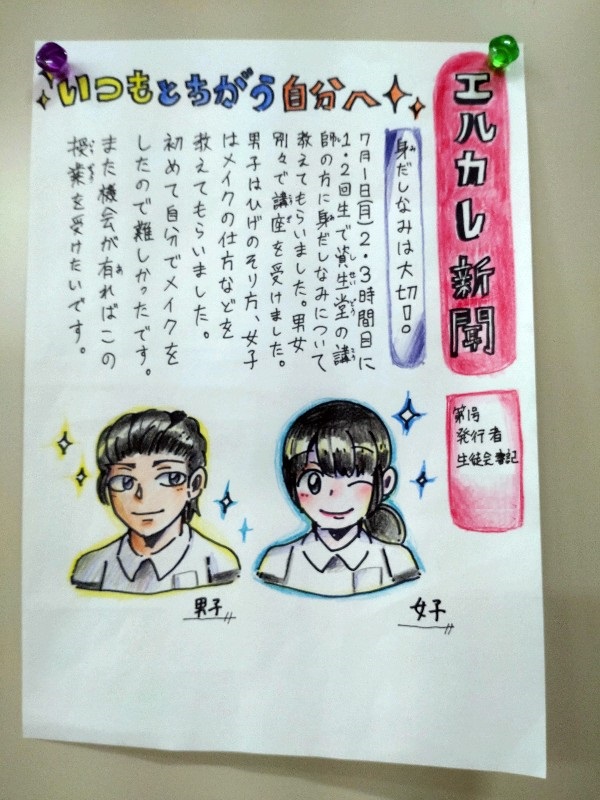 エルカレ新聞
第1号
発行者
生徒会書記
いつもとちがう自分へ
身だしなみは大切!。
7月1日(月)2・3時間目に
1・2回生で資生堂の講
師の方に身だしなみについて
教えてもらいました。男女
別々で講座を受けました。
男子はひげのそり方、女子
はメイクの仕方などを
教えてもらいました。
初めて自分でメイクを
したので難しかったです。
また機会が有ればこの
授業を受けたいです。
男子
女子